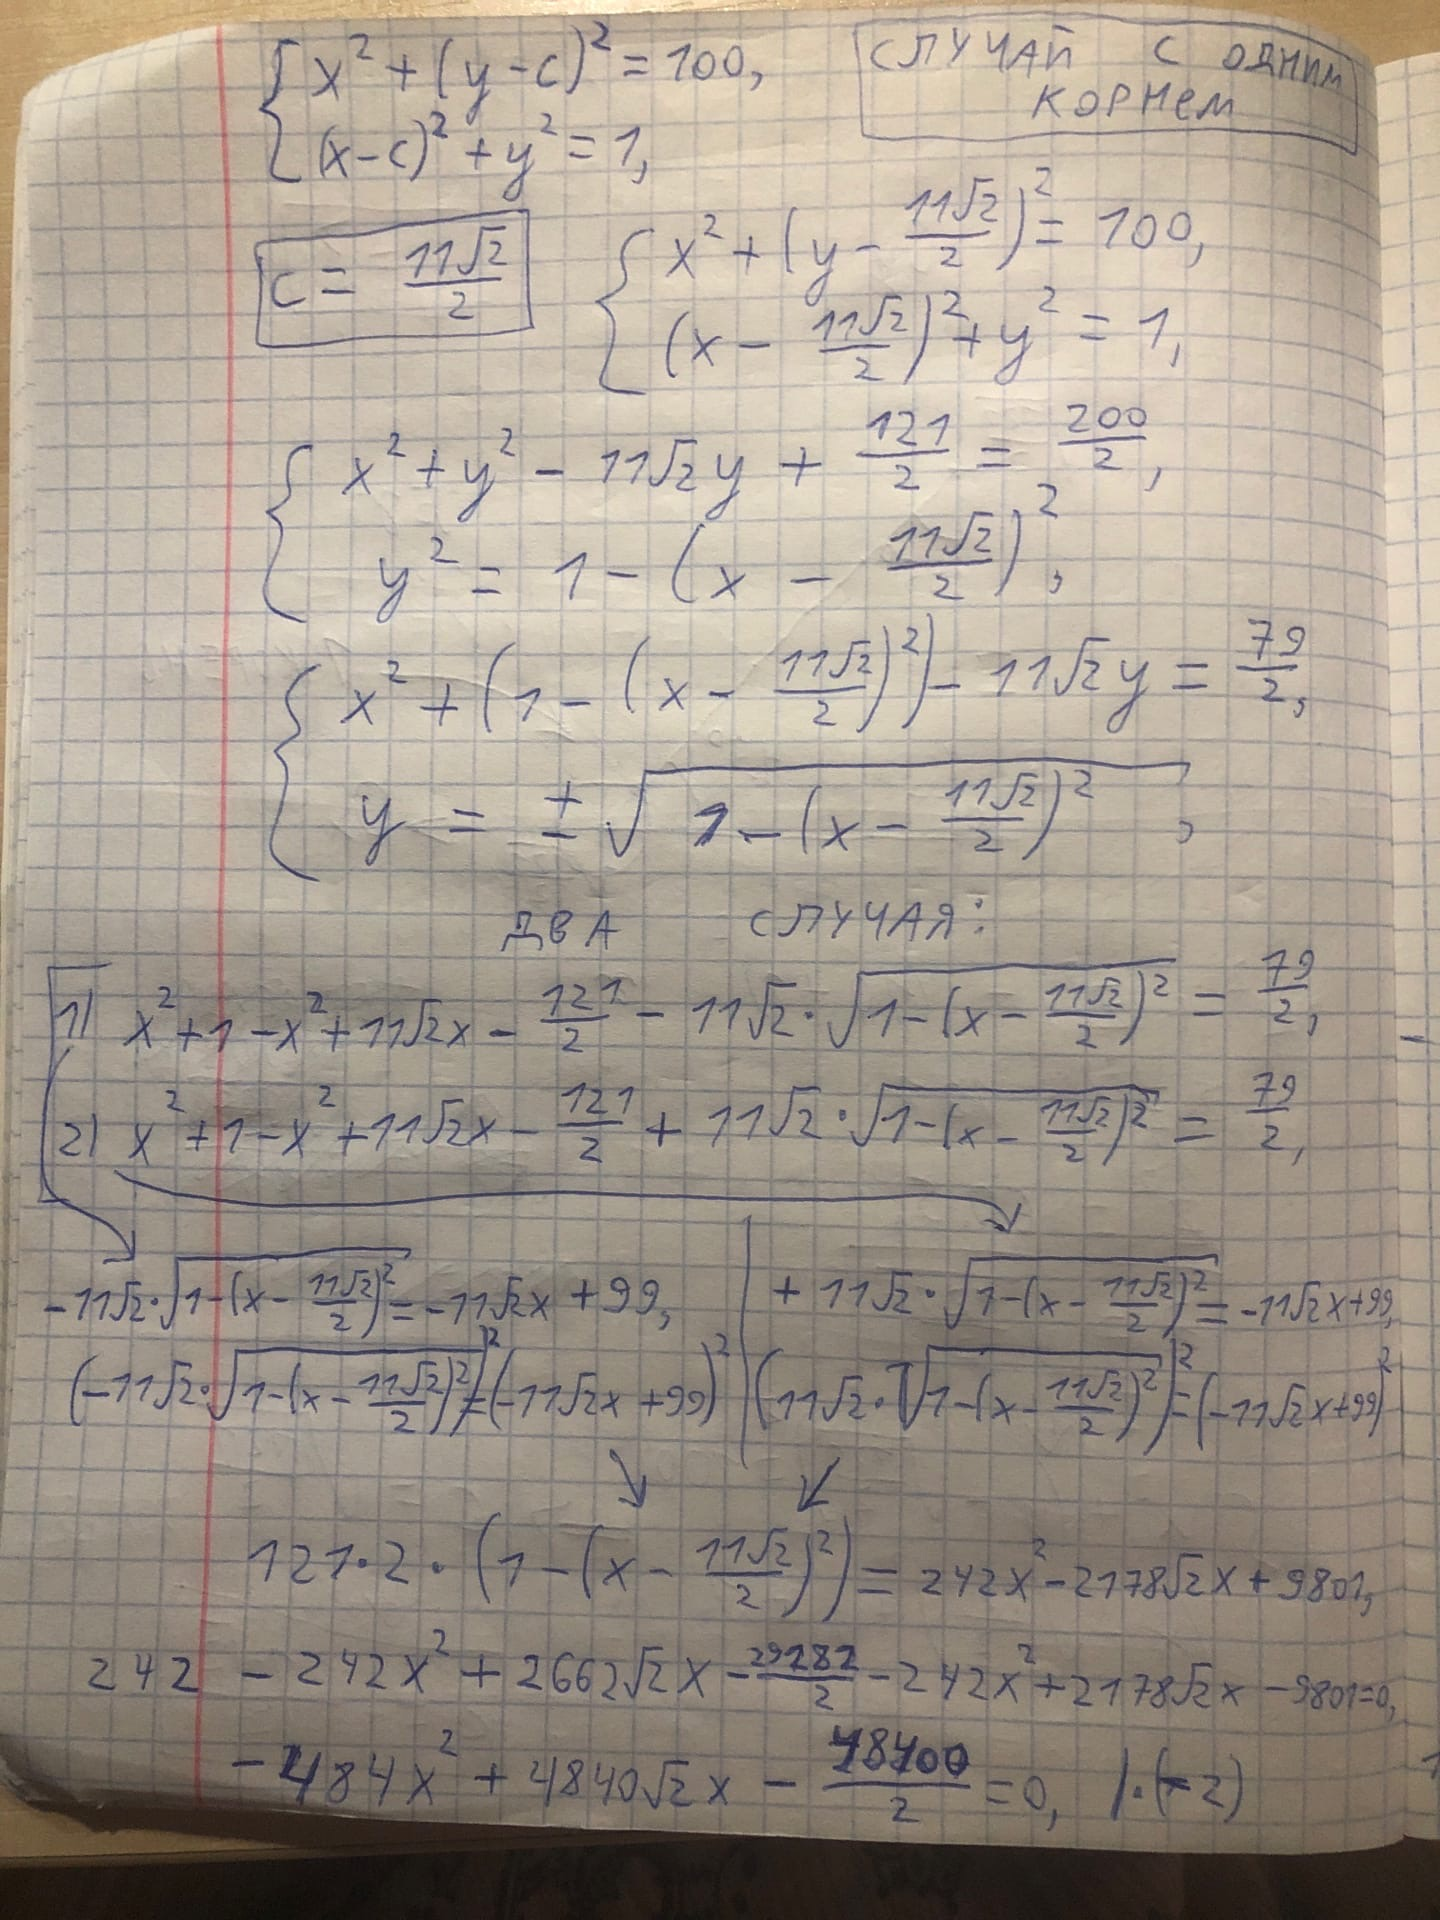 x² + (y - c)² = 100,
(x - c)² + y² = 1,
СЛУЧАЙ С ОДНИМ
КОРНЕМ
c = 11√2/2
x² + (y - 11√2/2)² = 100,
(x - 11√2/2)² + y² = 1,
x² + y² - 11√2y + 121/2 = 200/2,
y² = 1 - (x - 11√2/2)²,
x² + (1 - (x - 11√2/2)²) - 11√2y = 79/2,
y = ±√(1 - (x - 11√2/2)²),
ДВА СЛУЧАЯ:
1) x² + 1 - x² + 11√2x - 121/2 - 11√2·√(1 - (x - 11√2/2)²) = 79/2,
2) x² + 1 - x² + 11√2x - 121/2 + 11√2·√(1 - (x - 11√2/2)²) = 79/2,
-11√2·√(1 - (x - 11√2/2)²) = -11√2x + 99,
(-11√2·√(1 - (x - 11√2/2)²))² = (-11√2x + 99)²
+ 11√2·√(1 - (x - 11√2/2)²) = -11√2x + 99,
(11√2·√(1 - (x - 11√2/2)²))² = (-11√2x + 99)²
121·2·(1 - (x - 11√2/2)²) = 242x² - 2178√2x + 9801,
242 - 242x² + 2662√2x - 29282/2 - 242x² + 2178√2x - 9801 = 0,
-484x² + 4840√2x - 48400/2 = 0, |·(-2)